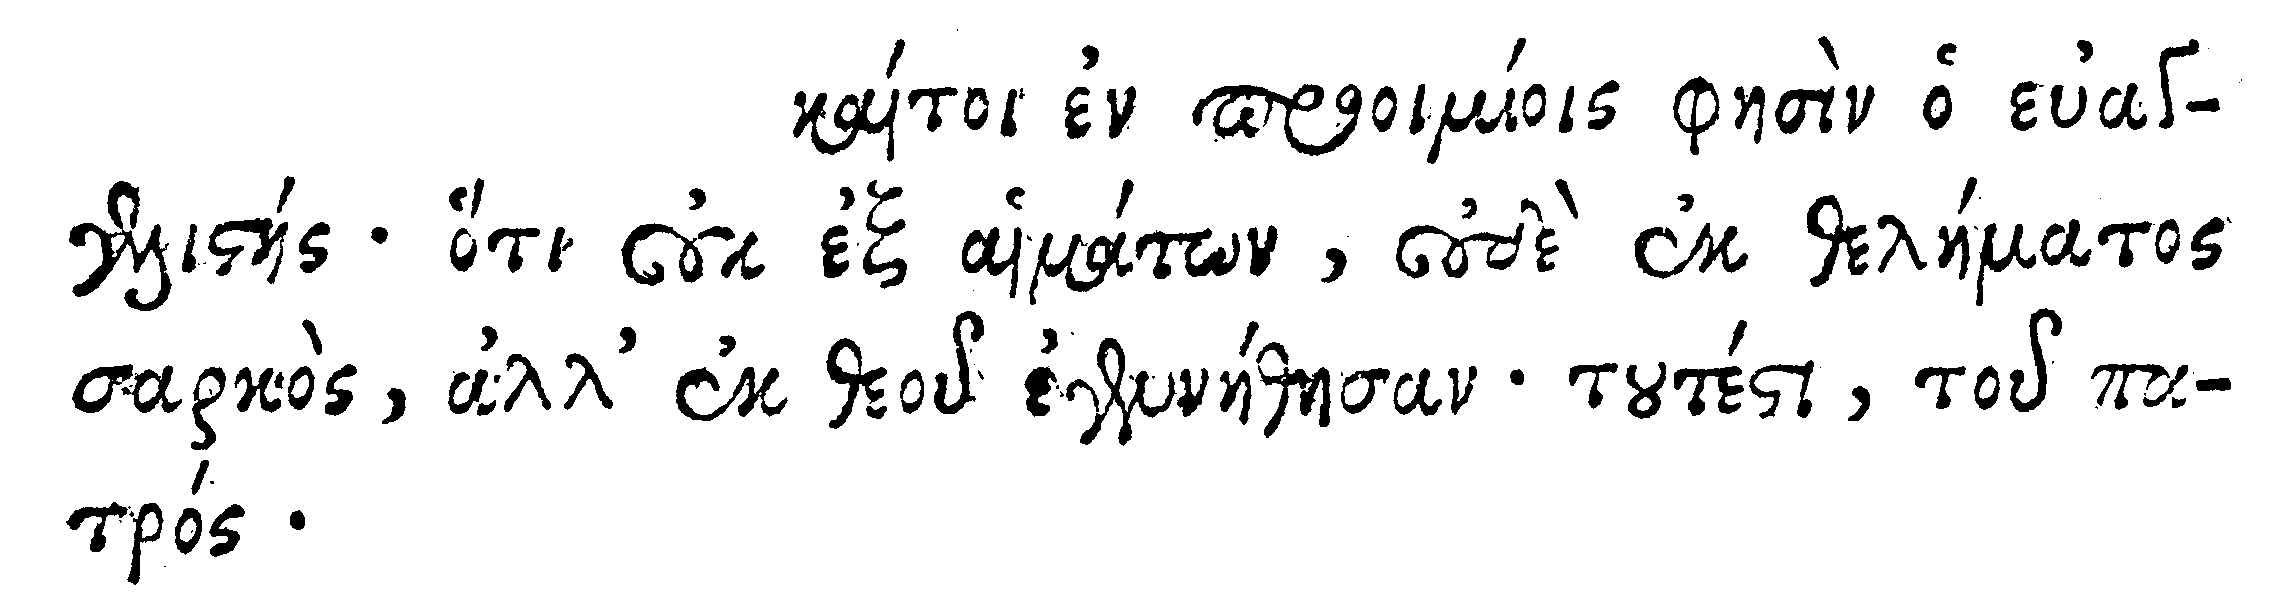 καίτοι ἐν προοιμίοις φησὶν ὁ εὐαγ-
γελιστής· ὅτι οὐκ ἐξ αἱμάτων, οὐδὲ ἐκ θελήματος
σαρκὸς, ἀλλ’ ἐκ θεοῦ ἐγεννήθησαν· τουτέστι, τοῦ πα-
τρός·